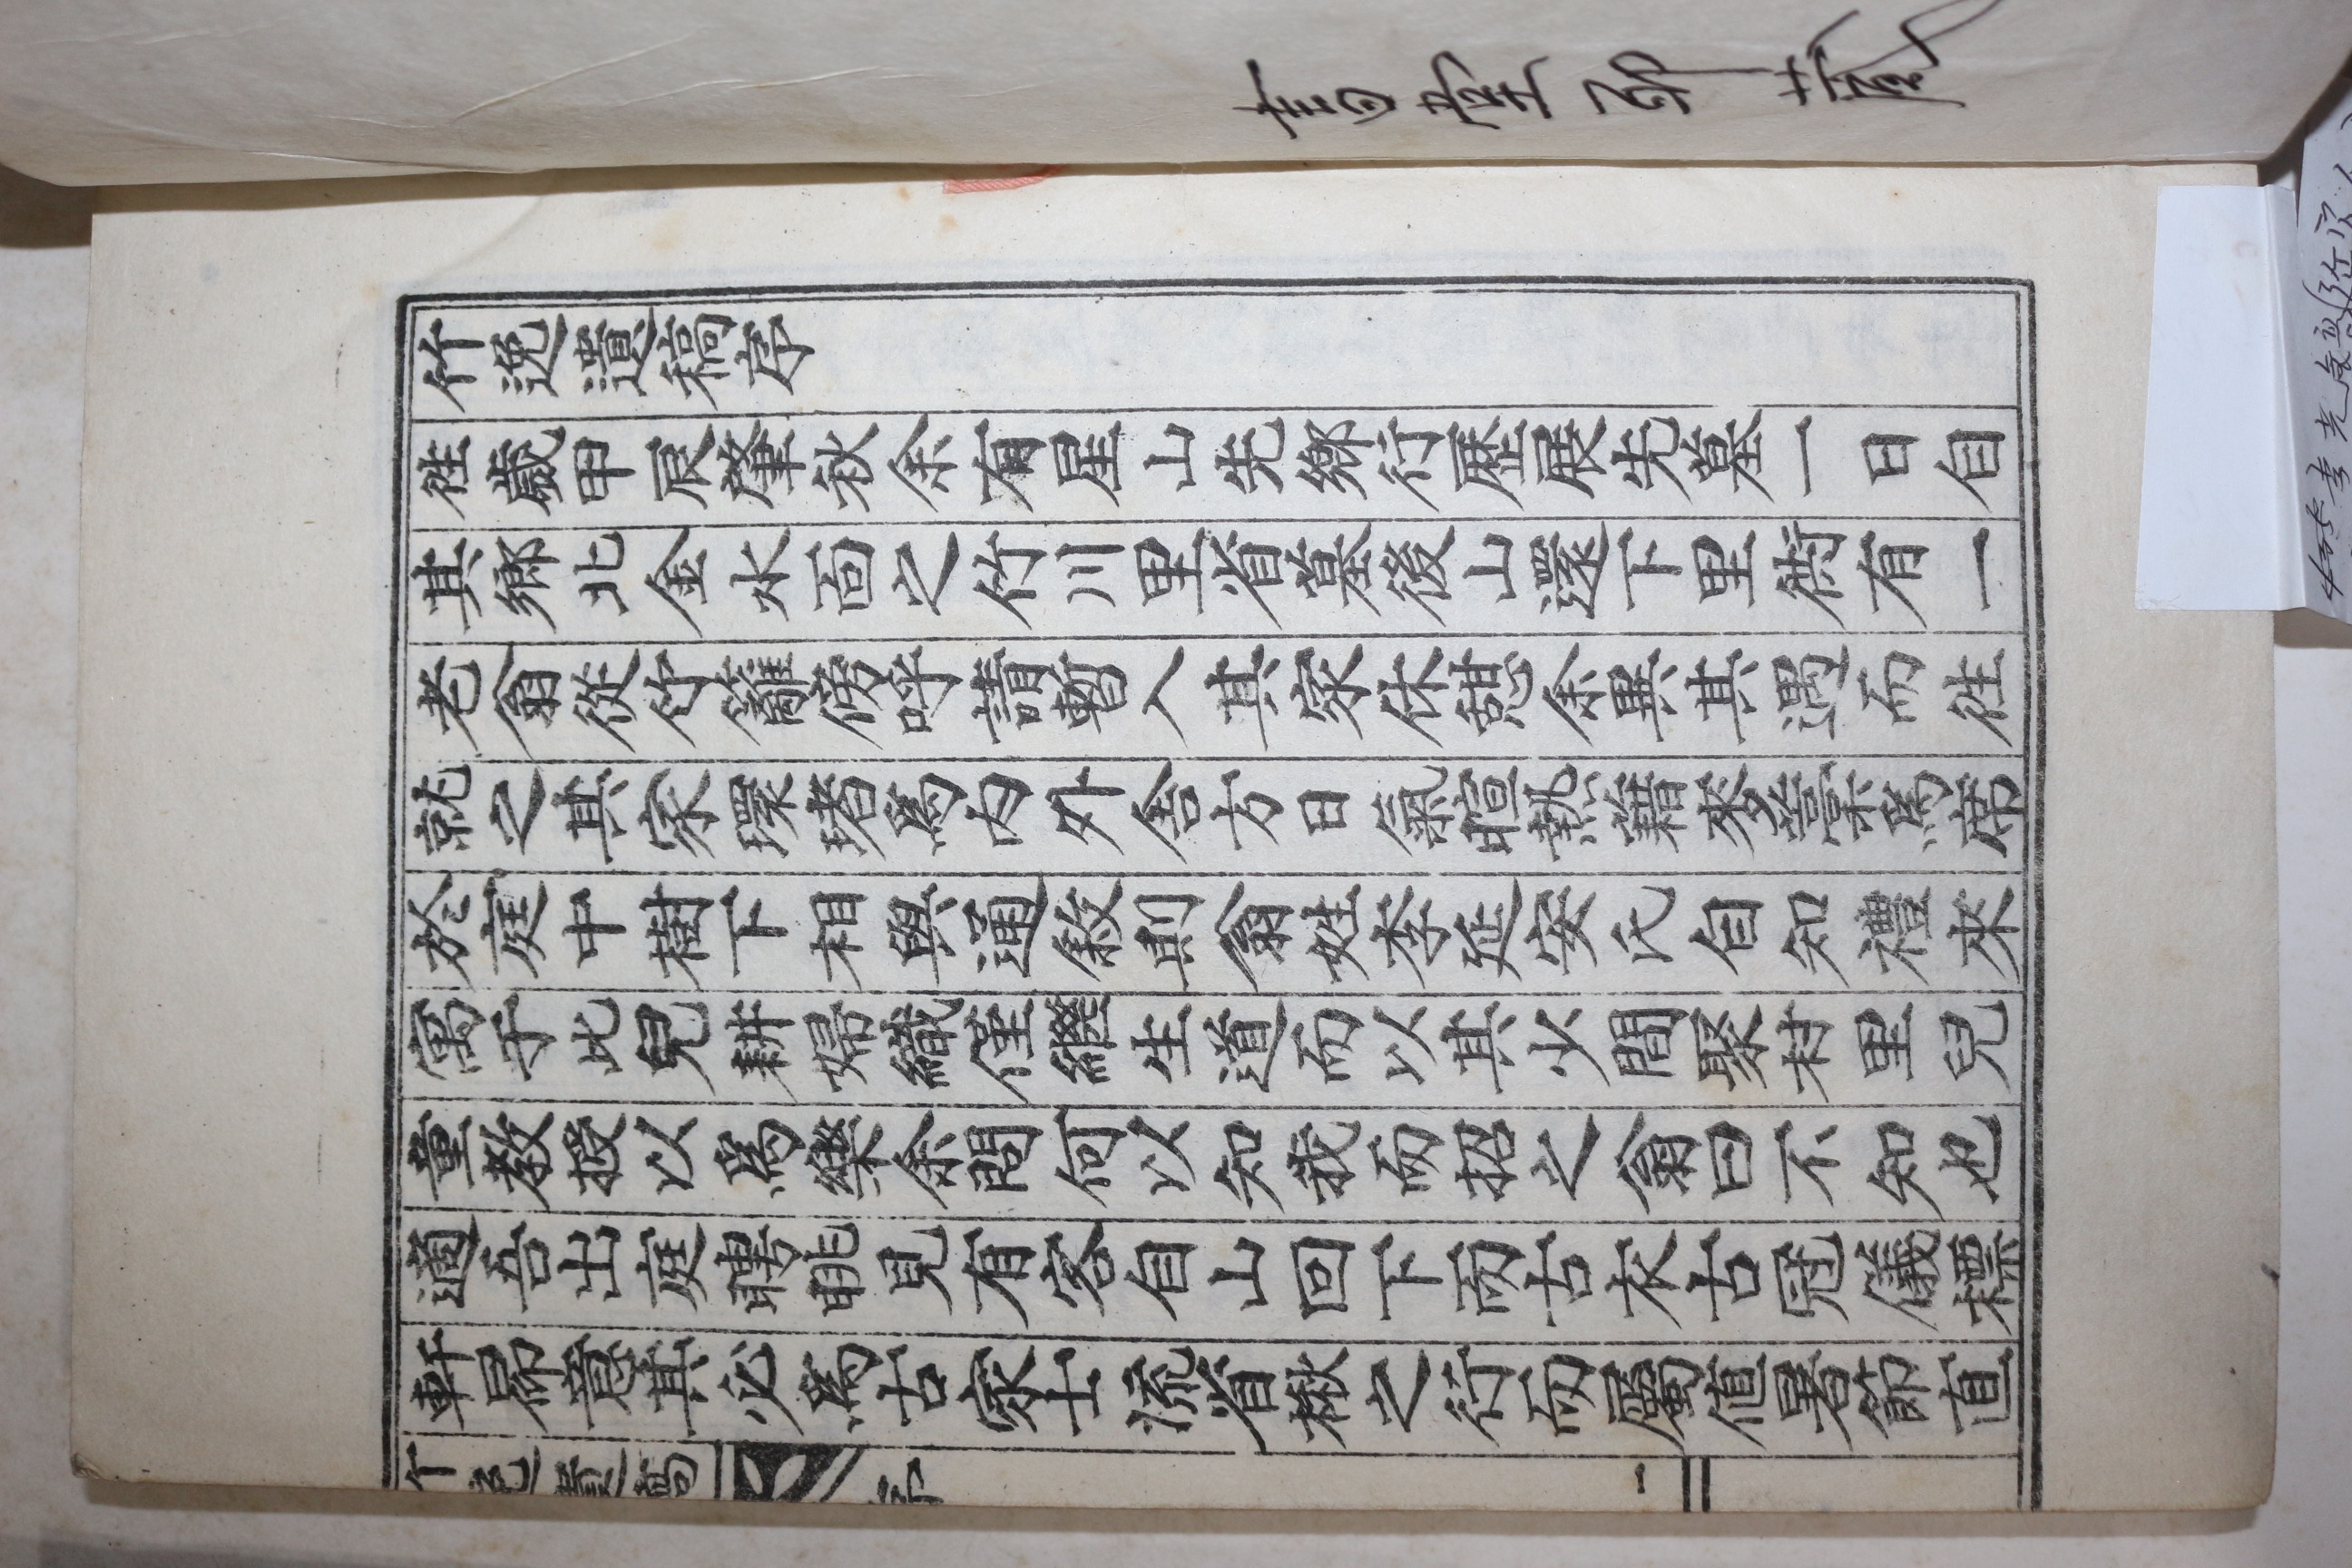 竹逸遺稿序
徃歲甲辰肇秋余有星山先鄉行歷展先墓一日自
其鄉北金水面之竹川里省墓後山還下里衖有一
老翁從竹籬傍呼請暫入其家休憇余異其遇而徃
就之其家環堵爲內外舍方日氣暄熱藉麥藁爲席
於庭中樹下相與通敘則翁姓李延安氏自知禮來
寓于此兒耕婦織僅繼生道而以其少間聚村里兒
童教授以爲樂余問何以知我而招之翁曰不知也
適吾出庭聘眺見有客自山回下而古衣古冠儀標
軒昻意其必爲古家士流省楸之行而屬値暑節直
竹逸遺稿
序
一